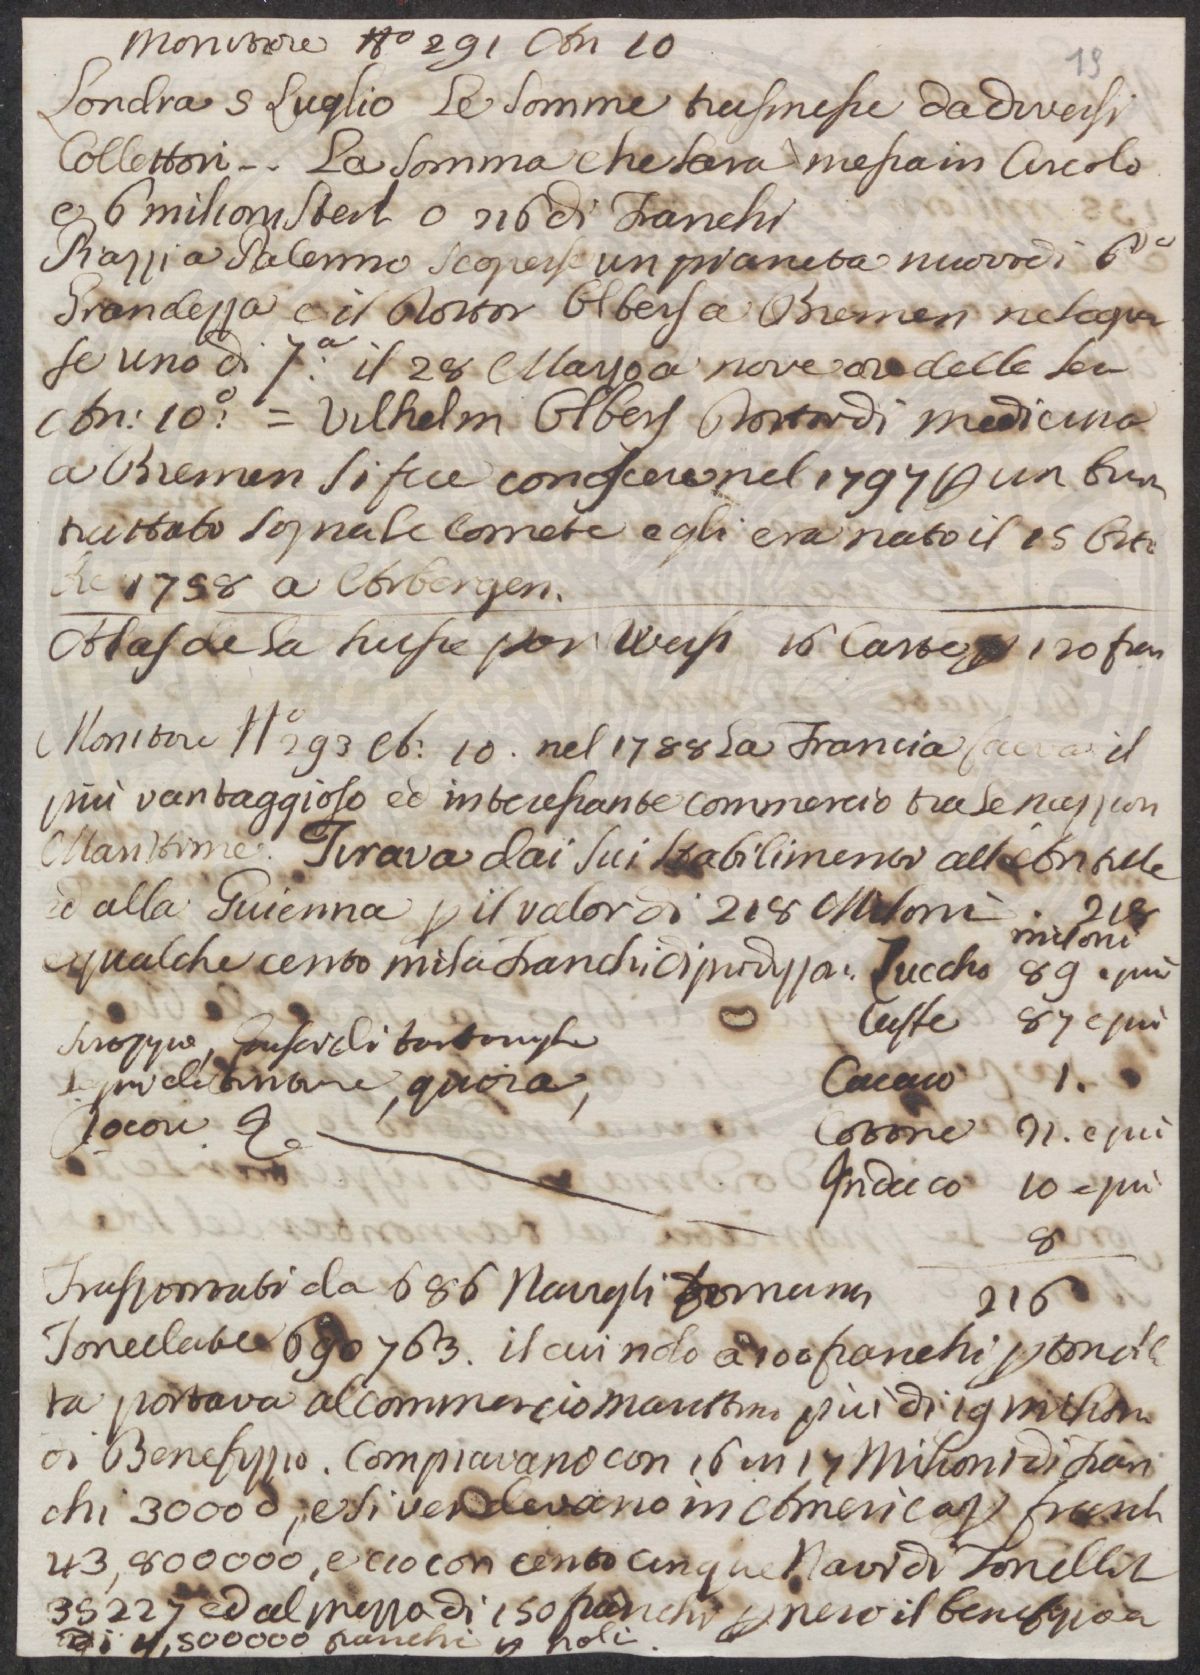 Monitore N.o 291 An 10
19
Londra 5 Luglio Le somme trasmesse da diversi
Collettori -- La somma che sara messa in Circolo
e 6 milioni sterl o 216 di Franchi
Piazzi a Palermo scoperse un pianeta nuovo di 6.a
Grandezza e il Dottor Olbers a Bremen ne scoper
se uno di 7.a il 28 Marzo a nove ore della sera
An: 10.o = Vilhelm Olbers Dottor di medicina
a Bremen si fece conoscere nel 1797 p un buon
trattato sopra le Comete egli era nato il 15 Otto
bre 1758 a Arbergen.
Atlas de la Suisse par Weiss 16 Carte p 120 fran
Monitore N.o 293 A: 10. nel 1788 La Francia faceva il
più vantaggioso ed interessante commercio tra le nazzioni
Maritime. Tirava dai sui stabilimenti all Antille
ed alla Guienna p il valor di 218 Milioni . 218
milioni
e qualche cento mila franchi di produzzion. Zuccho 89 e più
Caffe 87 e più
Siroppo, Gusci di tartarughe
legni di tinture, quoia, Cacao 1.
liquori &c Cotone 21. e più
Indaco 10 e più
8
Trasportati da 686 Navigli formanti 216
Tonellate 690763. il cui nolo a 100 franchi p tonela
ta portava al commercio marittimo più di 19 milioni
di Benefizzio. Compravano con 16 in 17 Milioni di fran
chi 30000, e si vendevano in America p franchi
43,800000, e cio con cento cinque Navi di Tonellate
35227 ed al prezzo di 150 franchi p nero il benefizzio a
di 4,500000 franchi p noli.